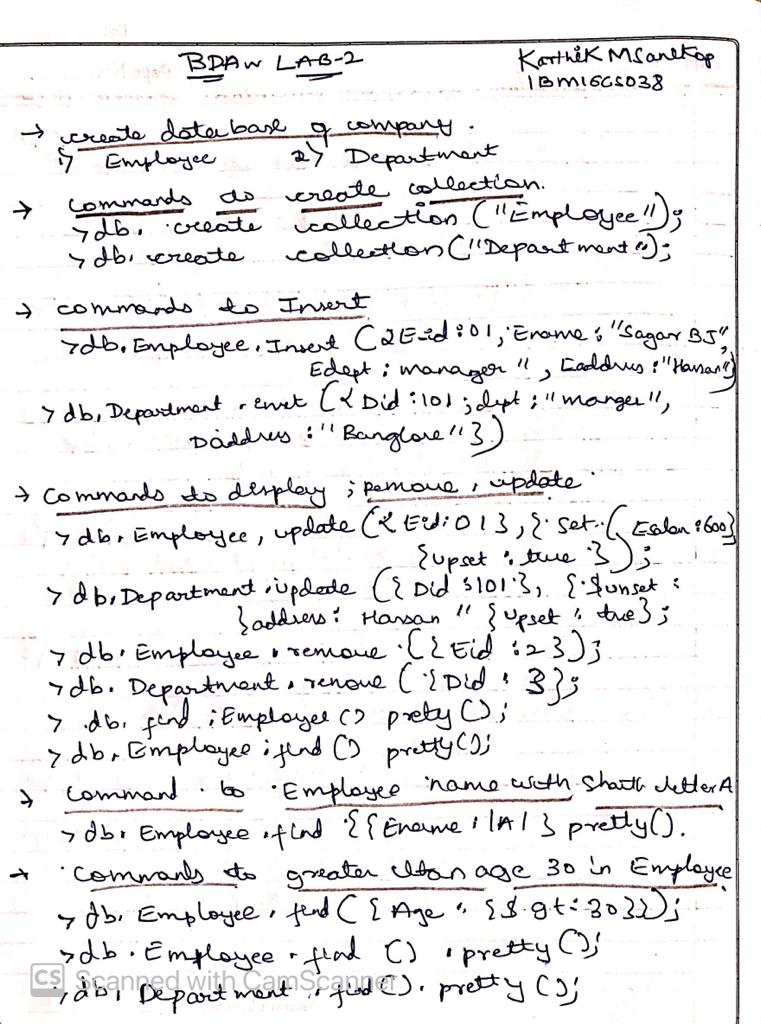 BDAW LAB-2
Karthik M Sanekop
1BM16CS038
→ create database of company.
1) Employee 2) Department
→ commands to create collection.
>db. create collection ("Employee");
>db. create collection ("Department");
→ commands to Insert
>db. Employee. Insert ({E-id:01, Ename: "Sagar BJ",
Edept: manager", Eaddress: "Hassan")
> db, Department . ({Did:101; dept; "manger",
Daddress: "Banglore"})
→ Commands to display ; remove, update
> db. Employee, update ({Eid:01}, {Set.( :600}
{upset: true});
> db, Department. update ({Did:101}, {$unset:
}address: Hassan" {upset: true};
> db. Employee. remove ({Eid:23);
> db. Department. remove ({Did: 3};
> db. find ; Employee () prety ();
> db, Employee ; find () pretty();
→ Command to Employee name with letter A
> db. Employee. find {{Ename: |A| } pretty().
→ Commands to greater than age 30 in Employee
> db. Employee. find ({Age: {$.gt:30}});
>db. Employee. find () . pretty ();
> db, Department. find(). pretty ();
CS Scanned with CamScanner